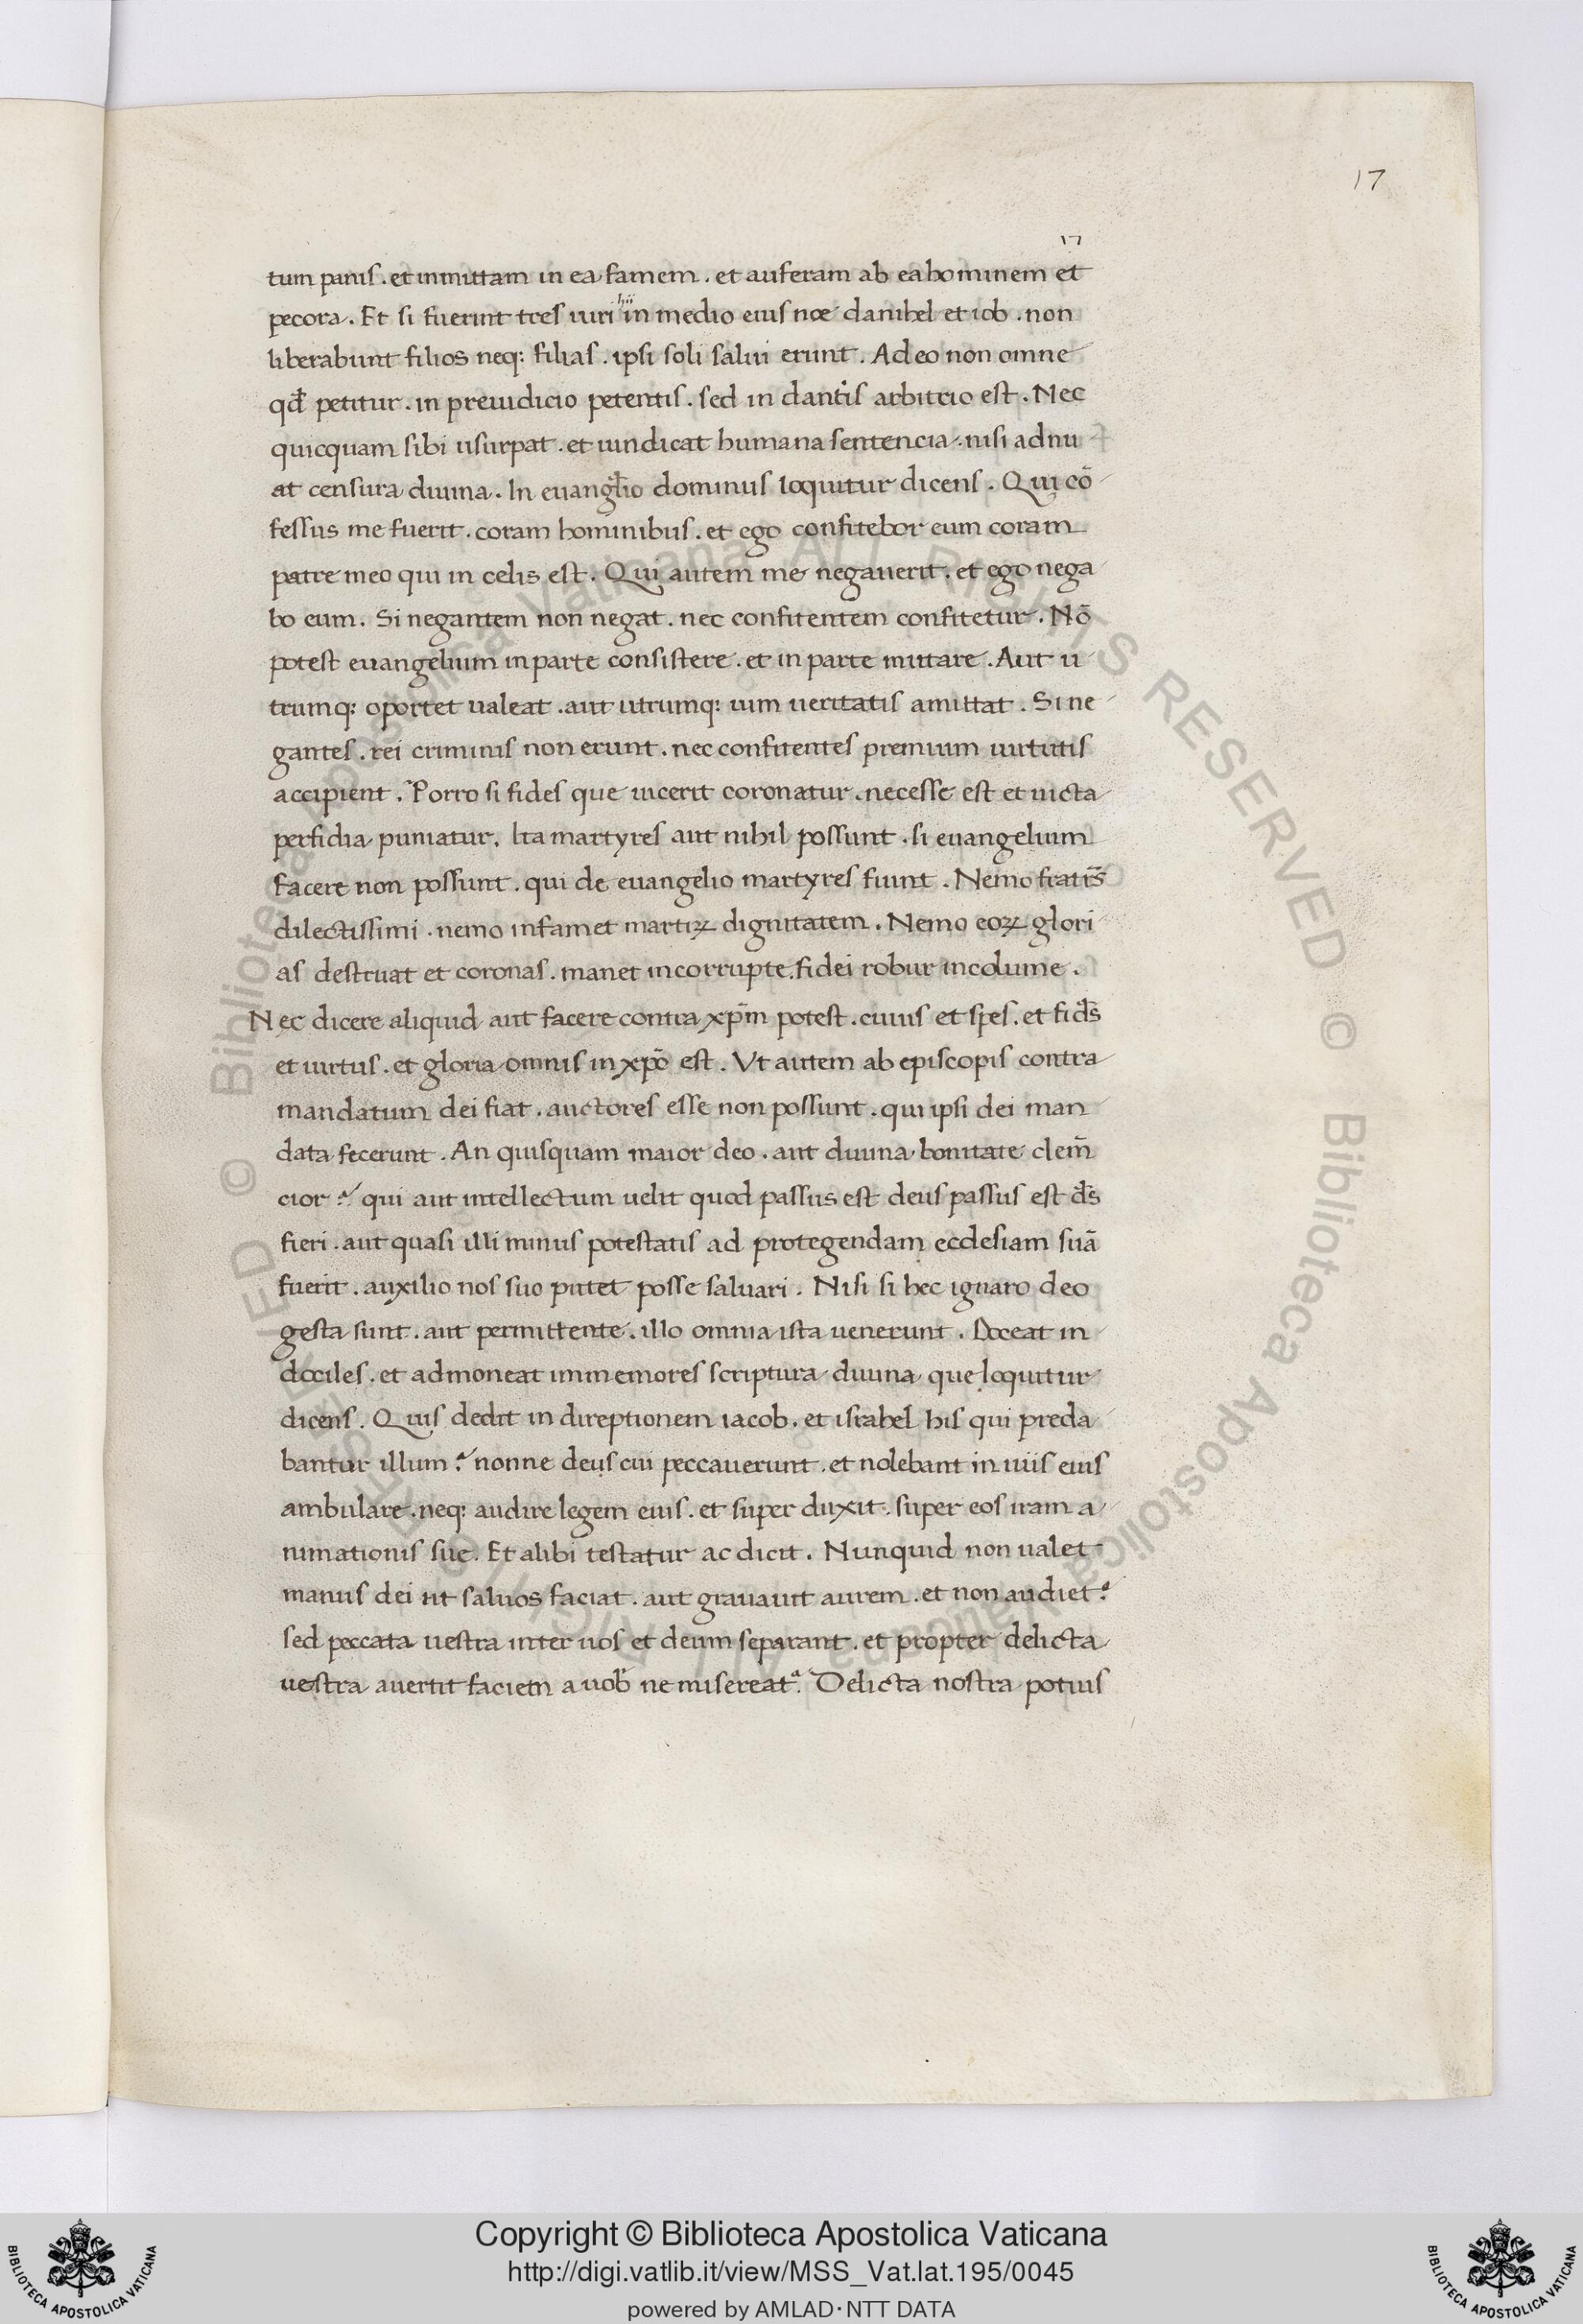 17
17
tum panis . et inmittam in ea famem . et auferam ab ea hominem et
pecora . Et si fuerint tres uiri hii in medio eius noe danihel et iob . non
liberabunt filios neq: filias . ipsi soli salui erunt . Adeo non omne
qđ petitur . in preiudicio petentis . sed in dantis arbitrio est . Nec
quicquam sibi usurpat . et uindicat humana sentencia . nisi adnu
at censura diuina . In euangl̄io dominus loquitur dicens . Qui cō
fessus me fuerit . coram hominibus . et ego confitebor eum coram
patre meo qui in celis est . Qui autem me negauerit . et ego nega
bo eum . Si negantem non negat . nec confitentem confitetur . Nō
potest euangelium in parte consistere . et in parte nutare . Aut u
trumq: oportet ualeat . aut utrumq: uim ueritatis amittat . Si ne
gantes . rei criminis non erunt . nec confitentes premium uirtutis
accipient . Porro si fides que uicerit coronatur . necesse est et uicta
perfidia puniatur . Ita martyres aut nihil possunt . si euangelium
facere non possunt . qui de euangelio martyres fiunt . Nemo fratr̄s
dilectissimi . nemo infamet martiꝝ dignitatem . Nemo eoꝝ glori
as destruat et coronas . manet incorrupte fidei robur incolume .
Nec dicere aliquid aut facere contra xp̄m potest . cuius et spes . et fid̄s
et uirtus . et gloria omnis in xp̄o est . Vt autem ab episcopis contra
mandatum dei fiat . auctores esse non possunt . qui ipsi dei man
data fecerunt . An quisquam maior deo . aut diuina bonitate clem̄
cior ? qui aut intellectum uelit quod passus est deus passus est d̄s
fieri . aut quasi illi minus potestatis ad protegendam ecclesiam suā
fuerit . auxilio nos suo putet posse saluari . Nisi si hec ignaro deo
gesta sunt . aut permittente . illo omnia ista uenerunt . Doceat in
dociles . et admoneat immemores scriptura diuina que loquitur
dicens . Quis dedit in direptionem iacob . et israhel his qui preda
bantur illum ? nonne deus cui peccauerunt . et nolebant in uiis eius
ambulare . neq: audire legem eius . et super duxit . super eos iram a
nimationis sue . Et alibi testatur ac dicit . Nunquid non ualet
manus dei ut saluos faciat . aut grauauit aurem . et non audiet ?
sed peccata uestra inter uos et deum separant . et propter delicta
uestra auertit faciem a uob ne misereat ? Delicta nostra potius
Copyright © Biblioteca Apostolica Vaticana
http://digi.vatlib.it/view/MSS_Vat.lat.195/0045
powered by AMLAD·NTT DATA
BIBLIOTECA APOSTOLICA VATICANA
BIBLIOTECA APOSTOLICA VATICANA